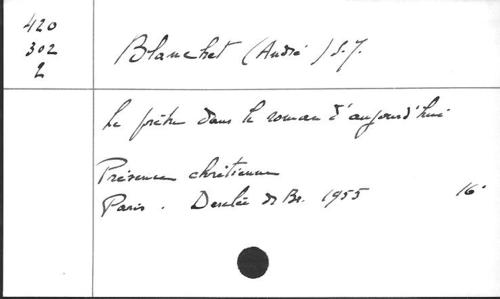 420
302
2
Blanchet (André) S.J.
Le prêtre dans le roman d'aujourd'hui
Présence chrétienne
Paris. Desclée de Br. 1955 16°